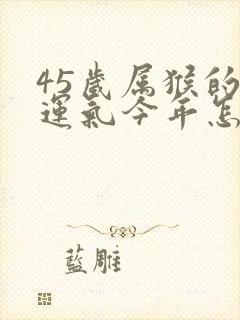 45歲属猴的
運氣今年怎
藍雕